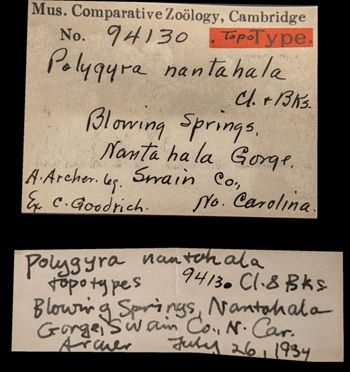 Mus. Comparative Zoölogy, Cambridge
No. 94130 TopoType.
Polygyra nantahala
Cl. & Bks.
Blowing Springs,
Nantahala Gorge,
A. Archer. leg. Swain Co.,
Ex C. Goodrich. No. Carolina.
Polygyra nantahala
topotypes 94130 Cl. & Bks
Blowing Springs, Nantahala
Gorge, Swain Co., N. Car.
Archer July 26, 1934